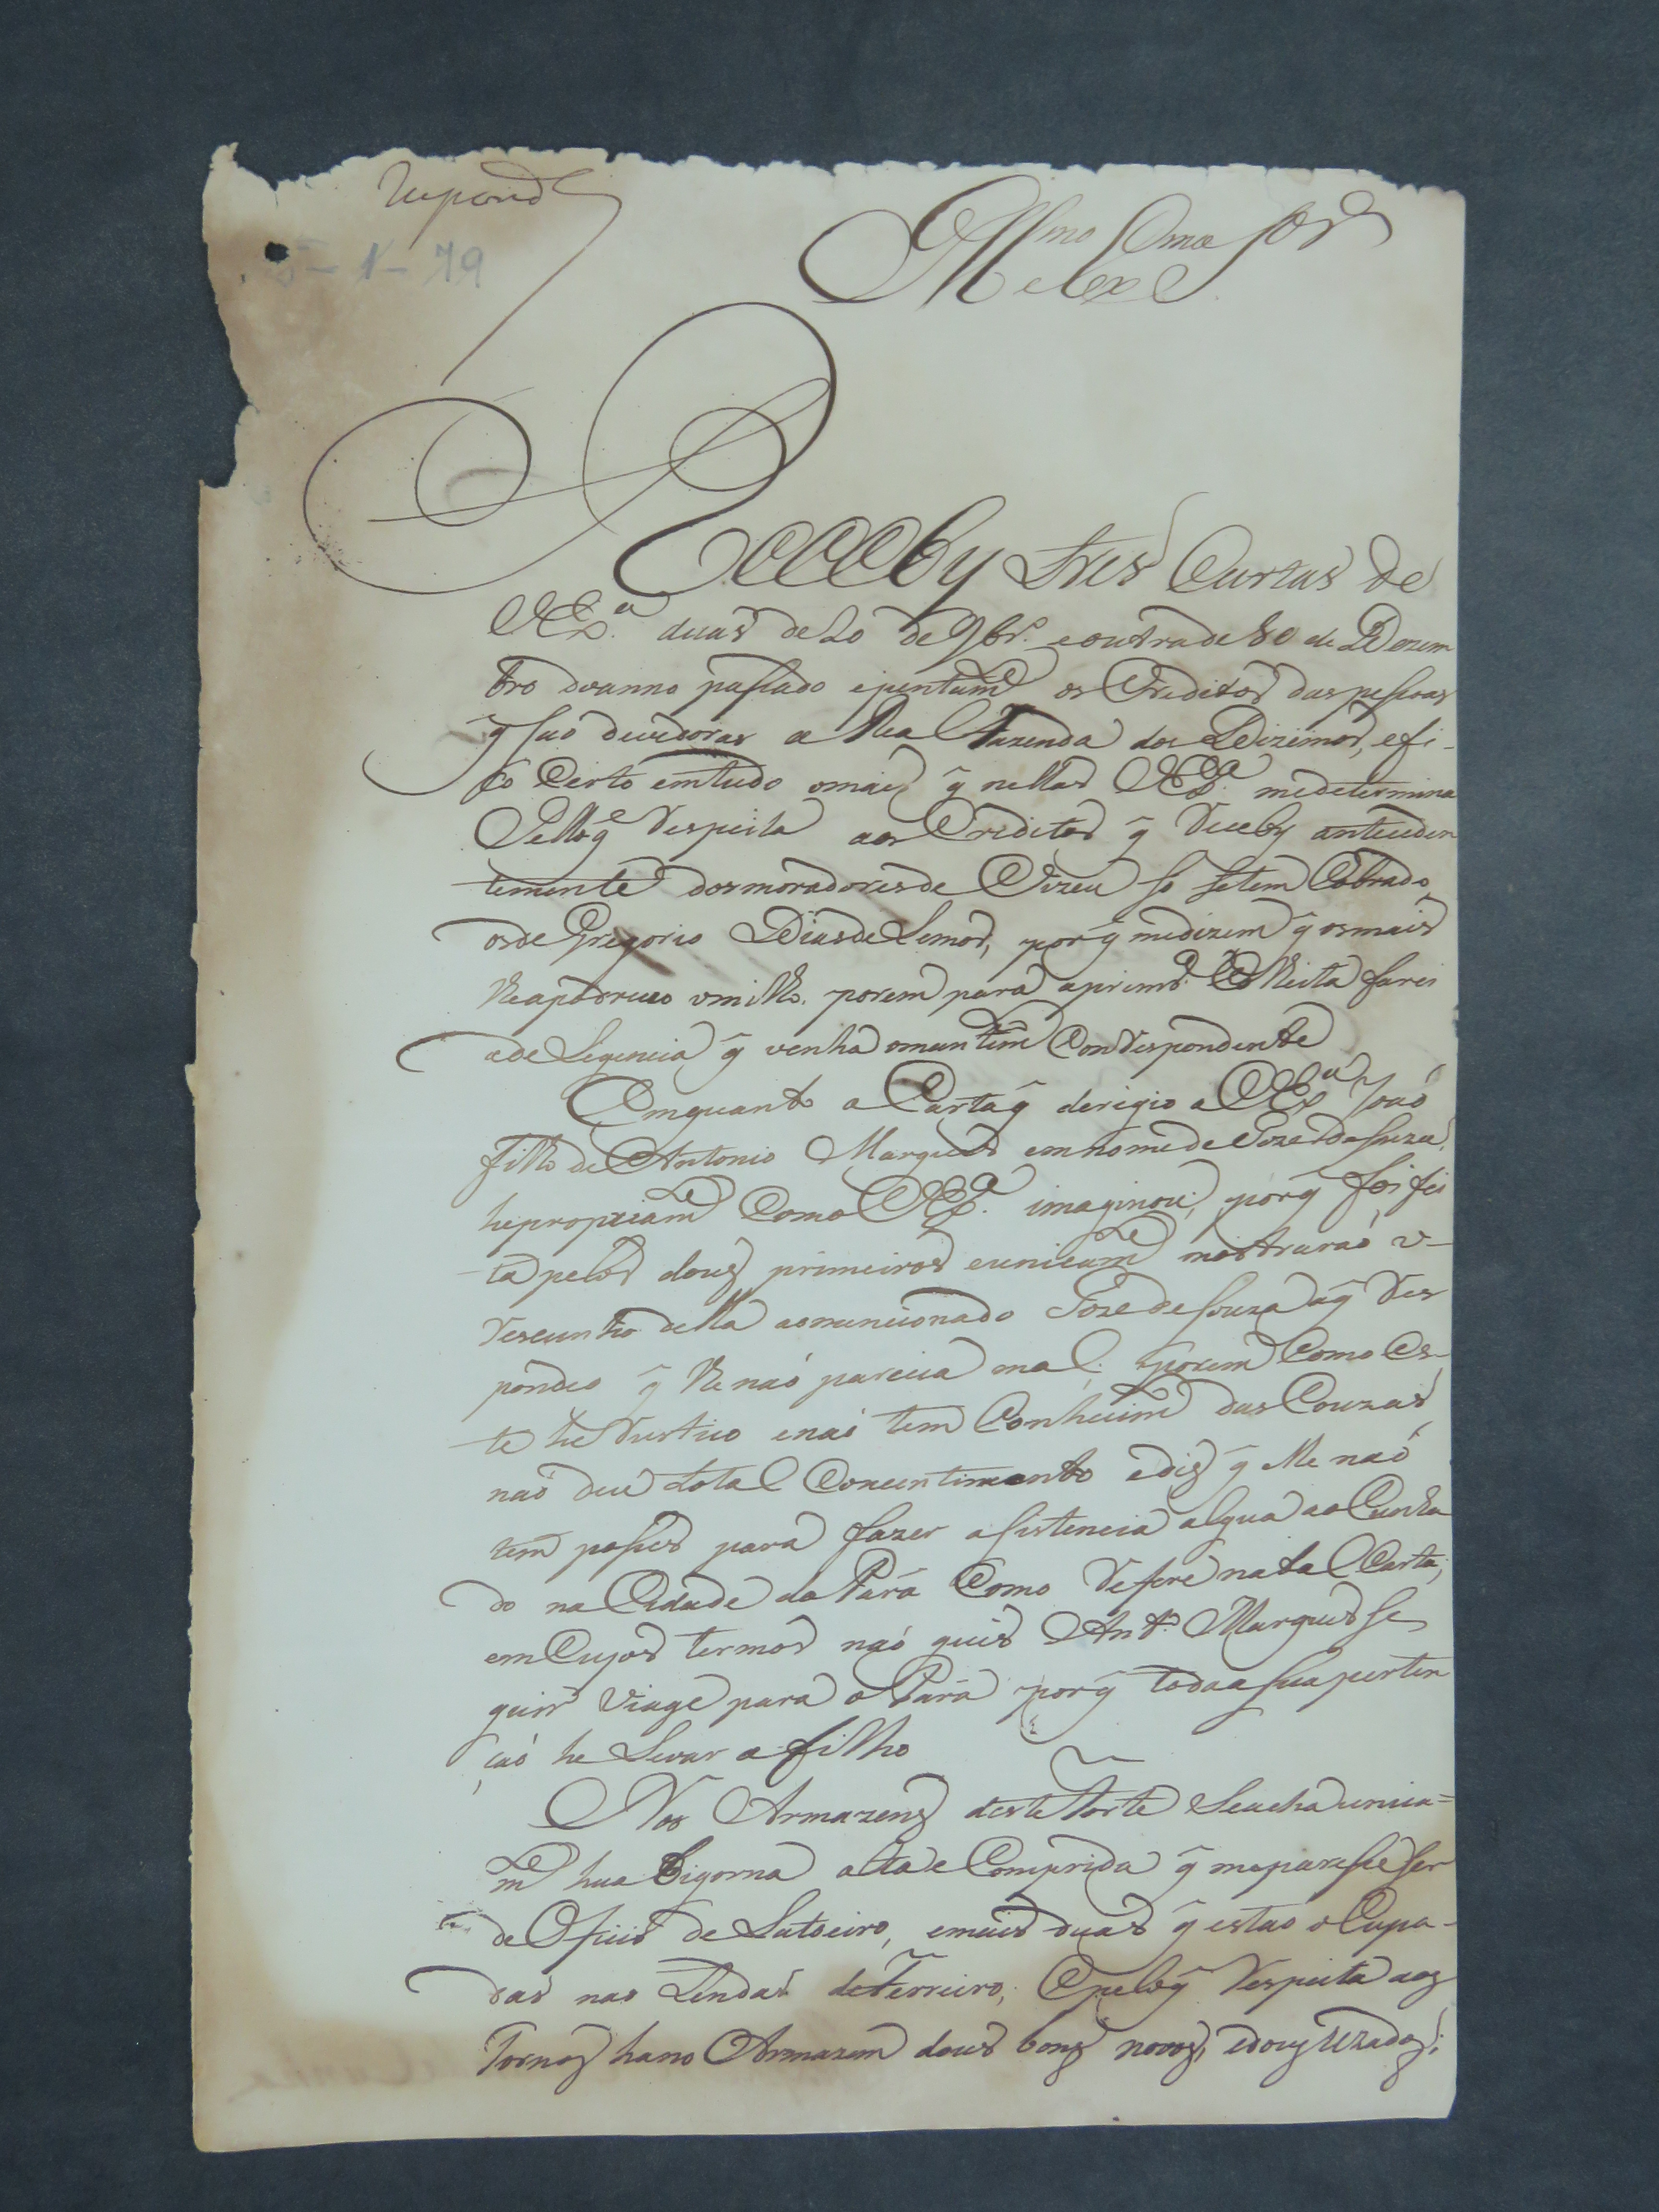 Respond.
5-1-79
Illmo. Exmo Sor.
Recceby tres Cartas de
VEx.ª duas de 20 de 9br.º e outra de 80 de Dezem
bro do anno passado e juntam.e os Creditos das pessoas
q̃ saó devedoras a Real Fazenda dos Dizimos, e fi-
co Certo em tudo o mais q̃ nellas VEx.ª me determina
Pello q̃ Respeita aos Creditos q̃ Receby anteceden
temente dos moradores de Vizeu só se tem Cobrado
os de Gregorio Dias de Lemos, por q̃ me dizem q̃ os mais
porem para a prim.ª Colheita farei
a deligencia q̃ venha o mantim.to Conrespondente
Emquanto a Carta q̃ derigio a VEx.ª Joaó
filho de Antonio Marques em nome de Joze de Souza,
he propriam.e Como VEx.ª imaginou; por q̃ foi fei
ta pelos dous primeiros e unicam.e mostraraó o
Rescunho della ao mencionado Joze de Souza a q̃ Res
pondeo q̃ lhe naó parecia mal; porem Como es-
te he Rustico e naó tem Conhecim.to das Couzas
naó deu total Concentimento e diz q̃ elle naó
tem posses para fazer asistencia algua ao Cunha
do na Cidade do Pará Como Refere na tal Carta;
em Cujos termos naó quis Ant.º Marques se
guir viage para o Pará por q̃ toda a sua perten
çaó he Levar o filho
Nos Armazens deste Forte se acha unica=
m.e hua Bigorna alta e Comprida q̃ me paresse ser
de Oficio de Latoeiro, e mais duas q̃ estao oCupa-
das nas Tendas de Ferreiro; E pelo q̃ Respeita aos
Tornos ha no Armazem dous bons novos, e dous Uzados;